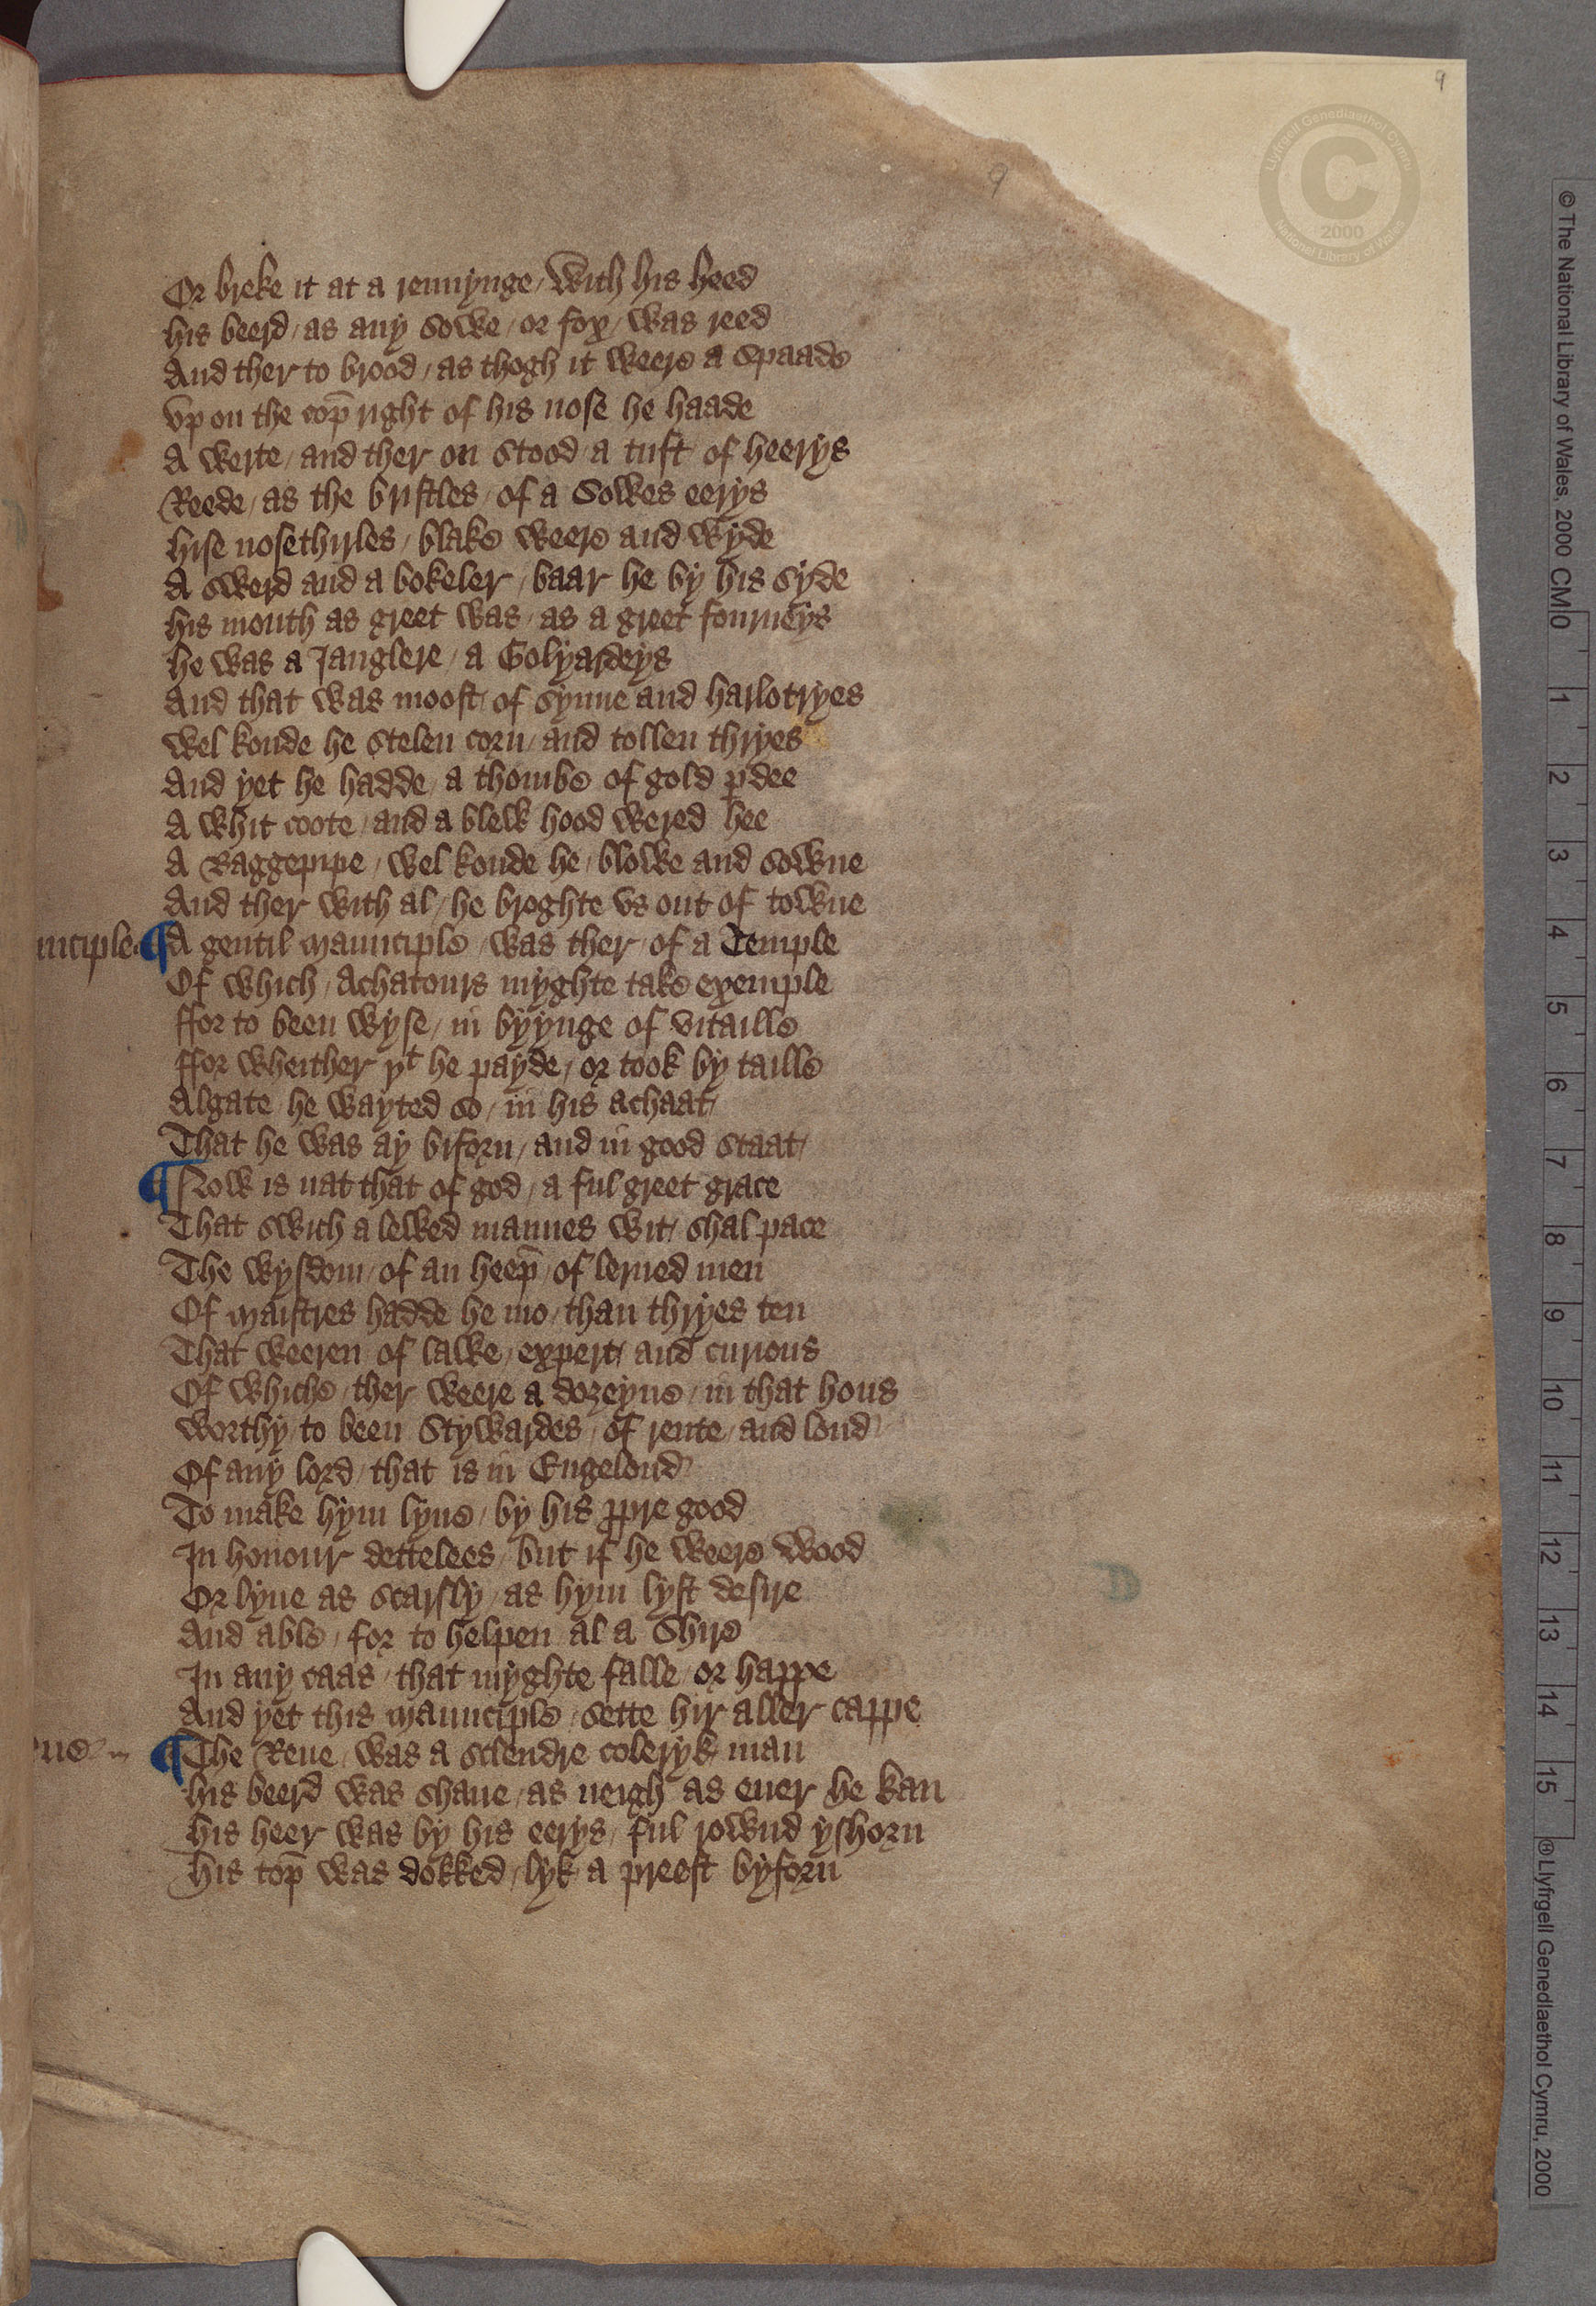 9
9
Or breke it at a rennynge / with his heed
his beerd / as any sowe / or fox / was reed
And ther to brood / as thogh it weere a spaade
vp on the cop̄ right of his nose he haade
A werte / and ther on stood / a tuft of heerys
Reede / as the bristles / of a Sowes eerys
hise nosethirles / blake weere and wyde
A swerd and a bokeler / baar he by his syde
his mouth as greet was / as a greet fourneys
he was a Janglere / a Golyardeys
And that was moost / of synne and harlotryes
wel koude he stelen corn / and tollen thryes
And yet he hadde / a thombe of gold ꝑdee
A whit coote / and a blew hood wered hee
A Baggepipe / wel koude he / blowe and sowne
And ther with al / he broghte vs out of towne
nciple ¶ A gentil Maunciple / was ther / of a Temple
Of which / Achatours myghte take exemple
ffor to been wyse / in byynge of vitaille
ffor wheither yᵗ he payde / or took by taille
Algate / he wayted so / in his achaat /
That he was ay biforn / and in good staat /
¶ Now is nat that of god / a ful greet grace
That swich a lewed mannes wit / shal pace
The wysdom / of an heep̄ / of lerned men
Of Maistres hadde he mo / than thryes ten
That weeren of lawe / expert / and curious
Of whiche / ther weere a dozeyne / in that hous
worthy / to been Stywardes / of rente / and lond
Of any lord / that is in Engelond
To make hym lyue / by his ꝓpre good
In honour dettelees / but if he weere wood
Or lyue as scarsly / as hym lyst desire
And able / for to helpen al a Shire
In any caas / that myghte falle / or happe
And yet this Maunciple / sette hir aller cappe
eue ¶ The Reue / was a sclendre coleryk man
his beerd was shaue / as neigh as euer he kan
his heer was by his eerys / ful rownd yshorn
his top̄ was dokked / lyk a preest byforn
Llyfrgell Genedlaethol Cymru
C
2000
National Library of Wales
© The National Library of Wales, 2000
CM 0 1 2 3 4 5 6 7 8 9 10 11 12 13 14 15
® Llyfrgell Genedlaethol Cymru, 2000